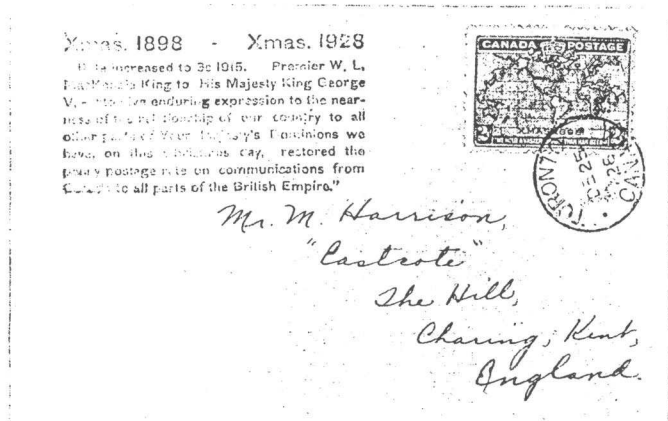 Xmas. 1898 - Xmas. 1928
increased to 3c 1915. Premier W. L.
MacKenzie King to His Majesty King George
V. - enduring expression to the near-
ness of the relationship of our country to all
other parts of Your Majesty's Dominions we
have, on this Christmas day, restored the
penny postage rate on communications from
Canada to all parts of the British Empire."
CANADA POSTAGE
XMAS 1898
TORONTO
DE 25
28
CAN
Mr. M. Harrison,
"Eastcote"
The Hill,
Charing, Kent,
England.